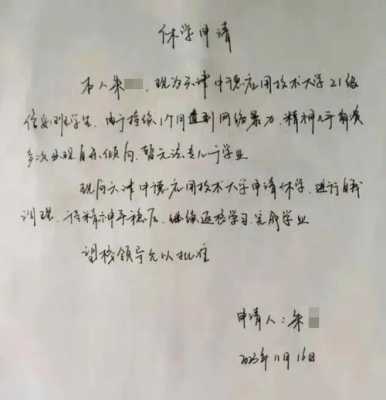 休学申请
本人朱 ,现为天津中德应用技术大学21级
信安班学生,由于持续1个月遭到网络暴力,精神几乎崩溃
多次出现自杀倾向,暂无法专心于学业
现向天津中德应用技术大学申请休学,进行自我
调理,待精神平稳后,继续返校学习,完成学业
望校领导允以批准
申请人:朱
2023年11月16日